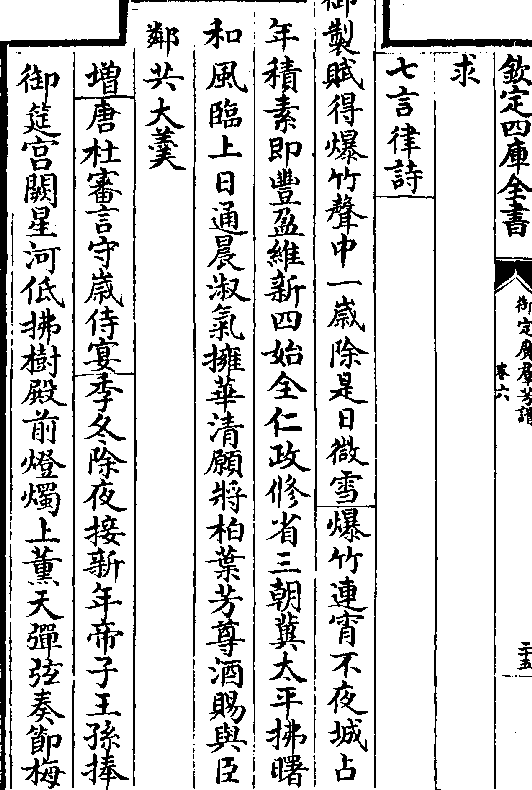 欽定四庫全書
御定廣羣芳譜
卷六
二十五
求
七言律詩
御製賦得爆竹聲中一歲除是日微雪爆竹連宵不夜城占
年積素即豐盈維新四始全仁政修省三朝冀太平拂曙
和風臨上日通晨淑氣擁華清願將柏葉芳尊酒賜與臣
鄰共大羹
增唐杜審言守歲侍宴季冬除夜接新年帝子王孫捧
御筵宮闕星河低拂樹殿前燈燭上薰天彈弦奏節梅